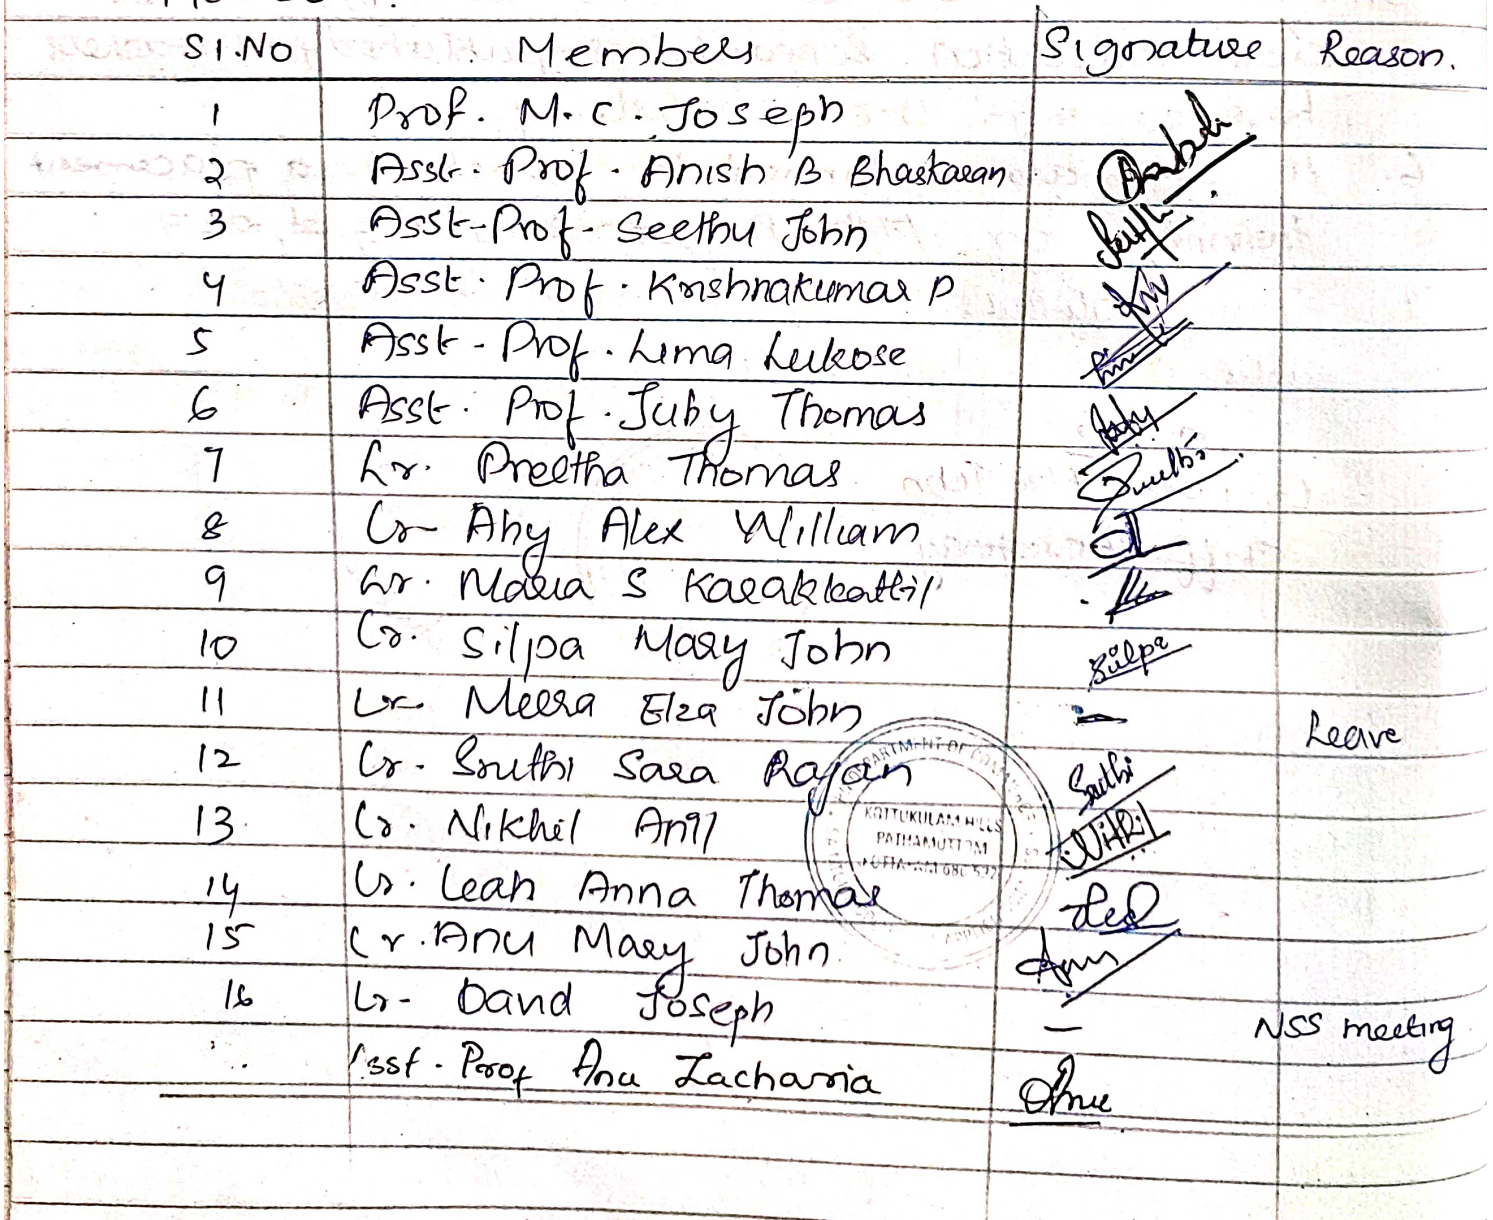 SI.No Members Signature Reason.
1 Prof. M.C. Joseph
2 Asst. Prof. Anish B Bhaskaran
3 Asst-Prof- Seethu John
4 Asst. Prof. Krishnakumar P
5 Asst- Prof. Lima Lukose
6 Asst. Prof. Juby Thomas
7 Lr. Preetha Thomas
8 Lr Aby Alex William
9 Lr. Maria S Karakkattil
10 Lr. Silpa Mary John Silpa
11 Lr. Meera Elza John - Leave
12 Lr. Sruthi Sara Rajan Sruthi
13 Lr. Nikhil Anil Nikhil
14 Lr. Leah Anna Thomas Leah
15 Lr. Anu Mary John Anu
16 Lr- David Joseph - NSS meeting
Asst. Prof Anu Zacharia Anu
DEPARTMENT OF COMMERCE
KOTTUKULAM HILLS
PATHAMUTTOM